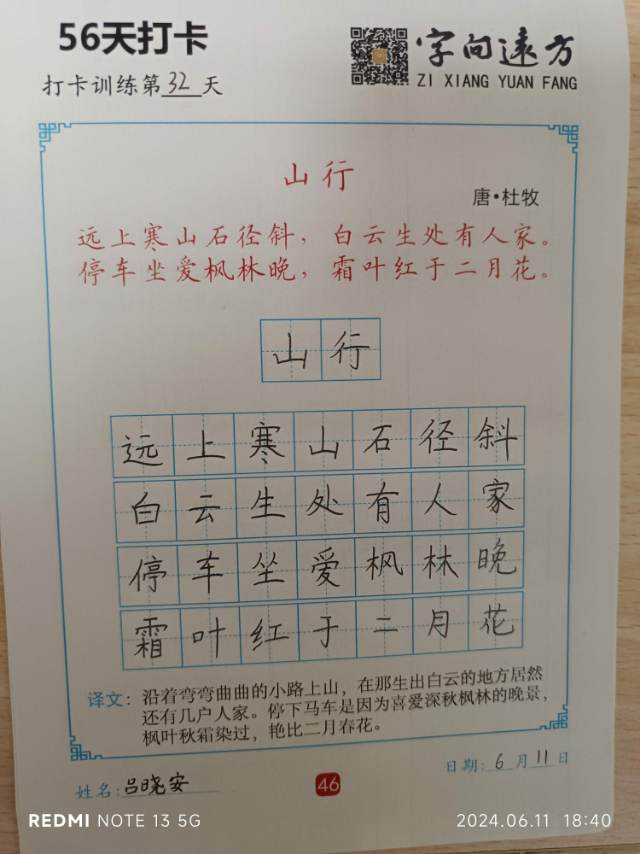 56天打卡
字向远方
ZI XIANG YUAN FANG
打卡训练第32天
山行
唐·杜牧
远上寒山石径斜，白云生处有人家。
停车坐爱枫林晚，霜叶红于二月花。
山行
远上寒山石径斜
白云生处有人家
停车坐爱枫林晚
霜叶红于二月花
译文：沿着弯弯曲曲的小路上山，在那生出白云的地方居然
还有几户人家。停下马车是因为喜爱深秋枫林的晚景，
枫叶秋霜染过，艳比二月春花。
姓名：吕晓安
46
日期：6月11日
REDMI NOTE 13 5G
2024.06.11 18:40